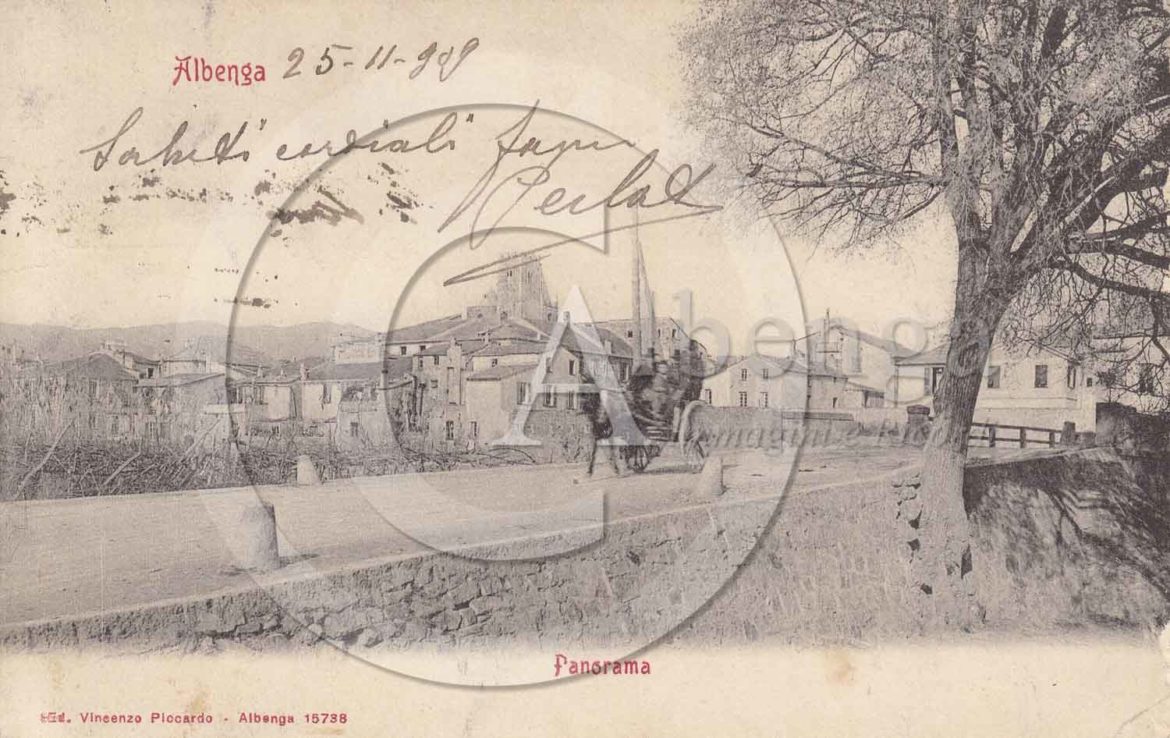 Albenga 25-11-909
Saluti cordiali
Panorama
Ed. Vincenzo Piccardo - Albenga 15738
A
Albenga
Immagini e